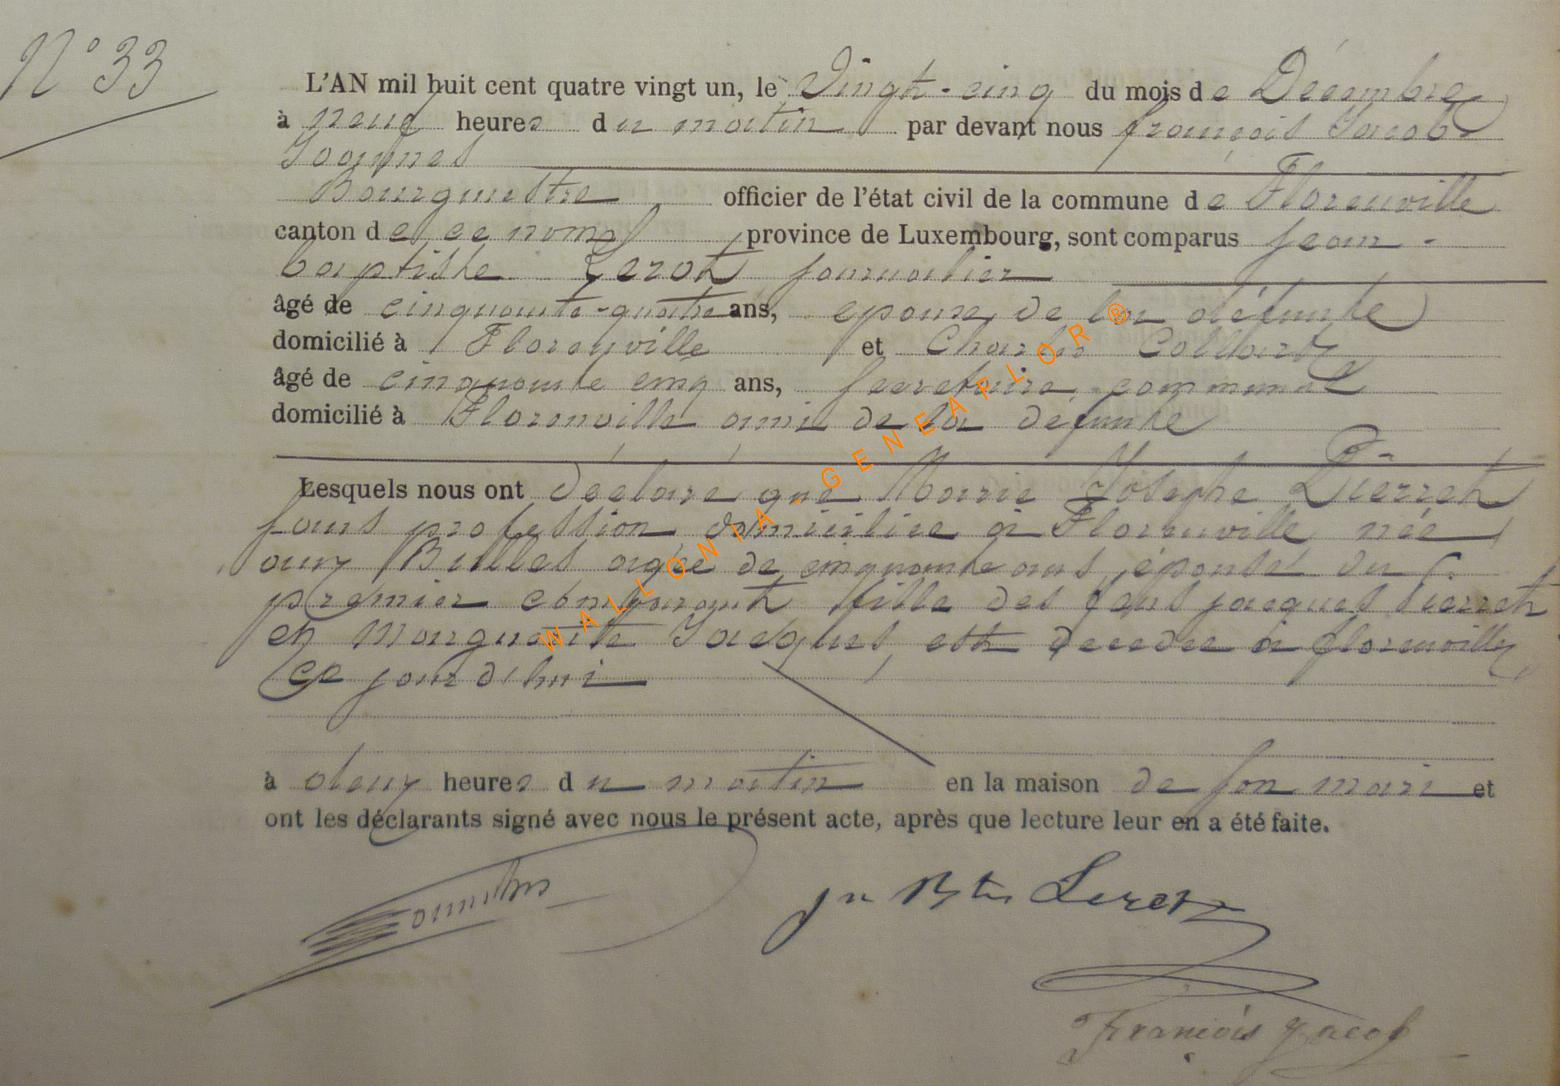 N° 33
L'AN mil huit cent quatre vingt un, le Vingt-cinq du mois de Décembre
à neuf heures du matin par devant nous françois Jacob
Joannes
Bourgmestre officier de l'état civil de la commune de Florenville
canton de ce nom province de Luxembourg, sont comparus jean-
baptiste Lerot journalier
âgé de cinquante-quatre ans, epoux de la défunte
domicilié à Florenville et Charles
âgé de cinquante cinq ans, secretaire communal
domicilié à Florenville ami de la défunte
Lesquels nous ont déclaré que Marie Josephe Pierret
sans profession domiciliée à Florenville née
aux Bulles agée de cinquante ans, épouse du
premier comparant fille des feus jacques Pierret
et Marguerite Jacques, est decedée à florenville
ce jourd'hui
à deux heures du matin en la maison de son mari et
ont les déclarants signé avec nous le présent acte, après que lecture leur en a été faite.
Jn Bte Lerot
François Jacob
WALLONIA-GENEAFLOR®